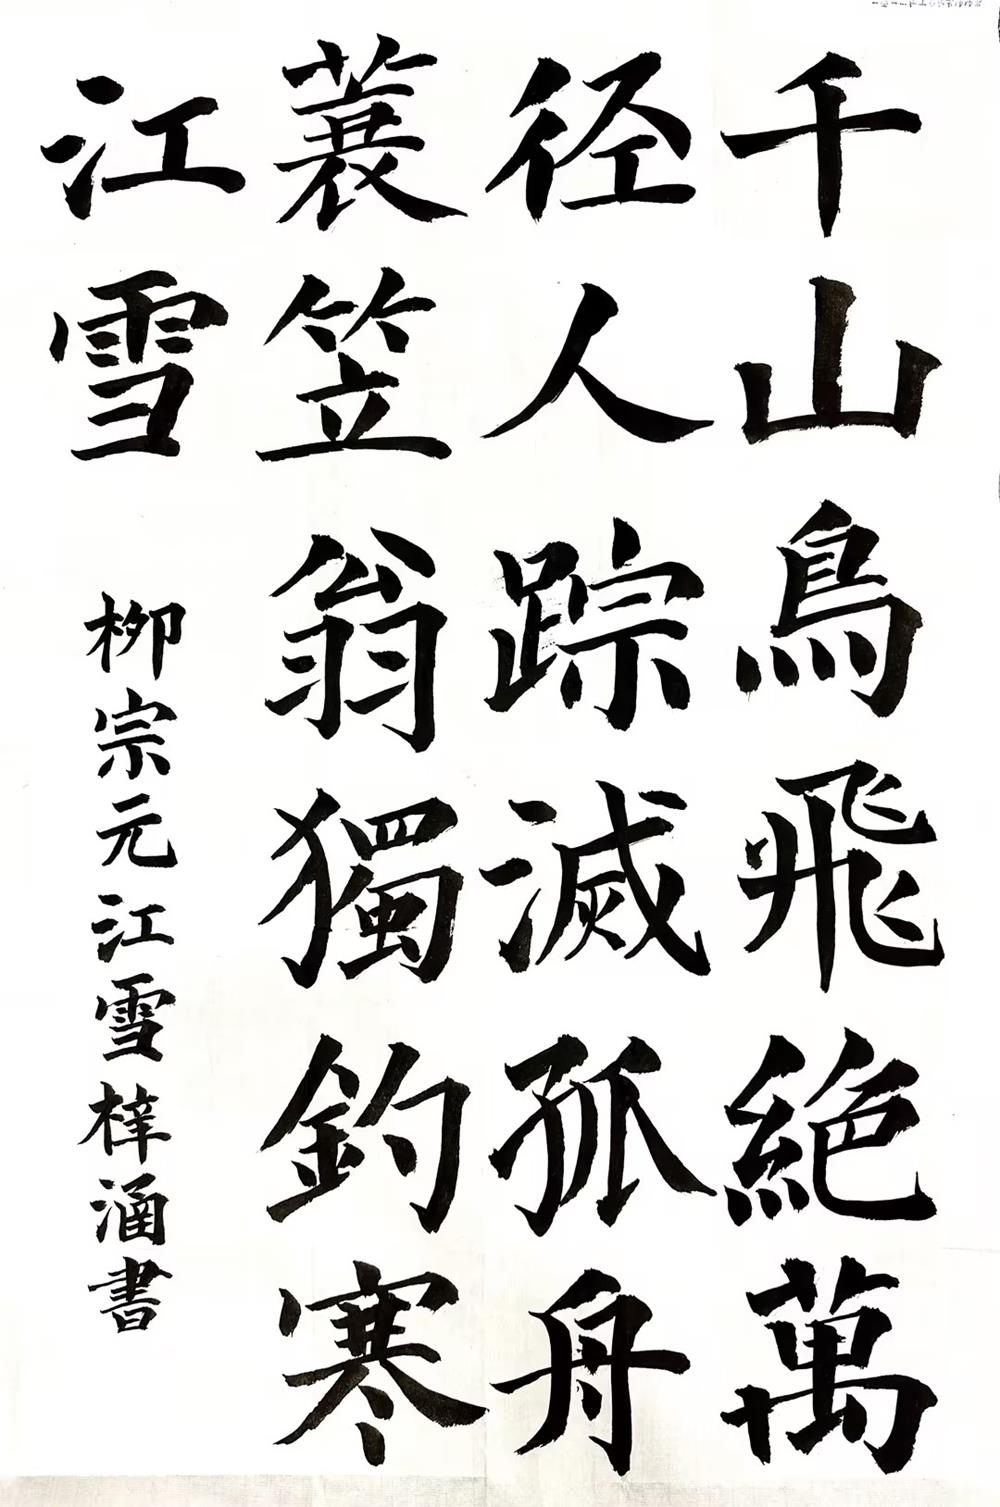 千山鳥飛絶萬
径人踪滅孤舟
蓑笠翁獨釣寒
江雪
柳宗元江雪梓涵書